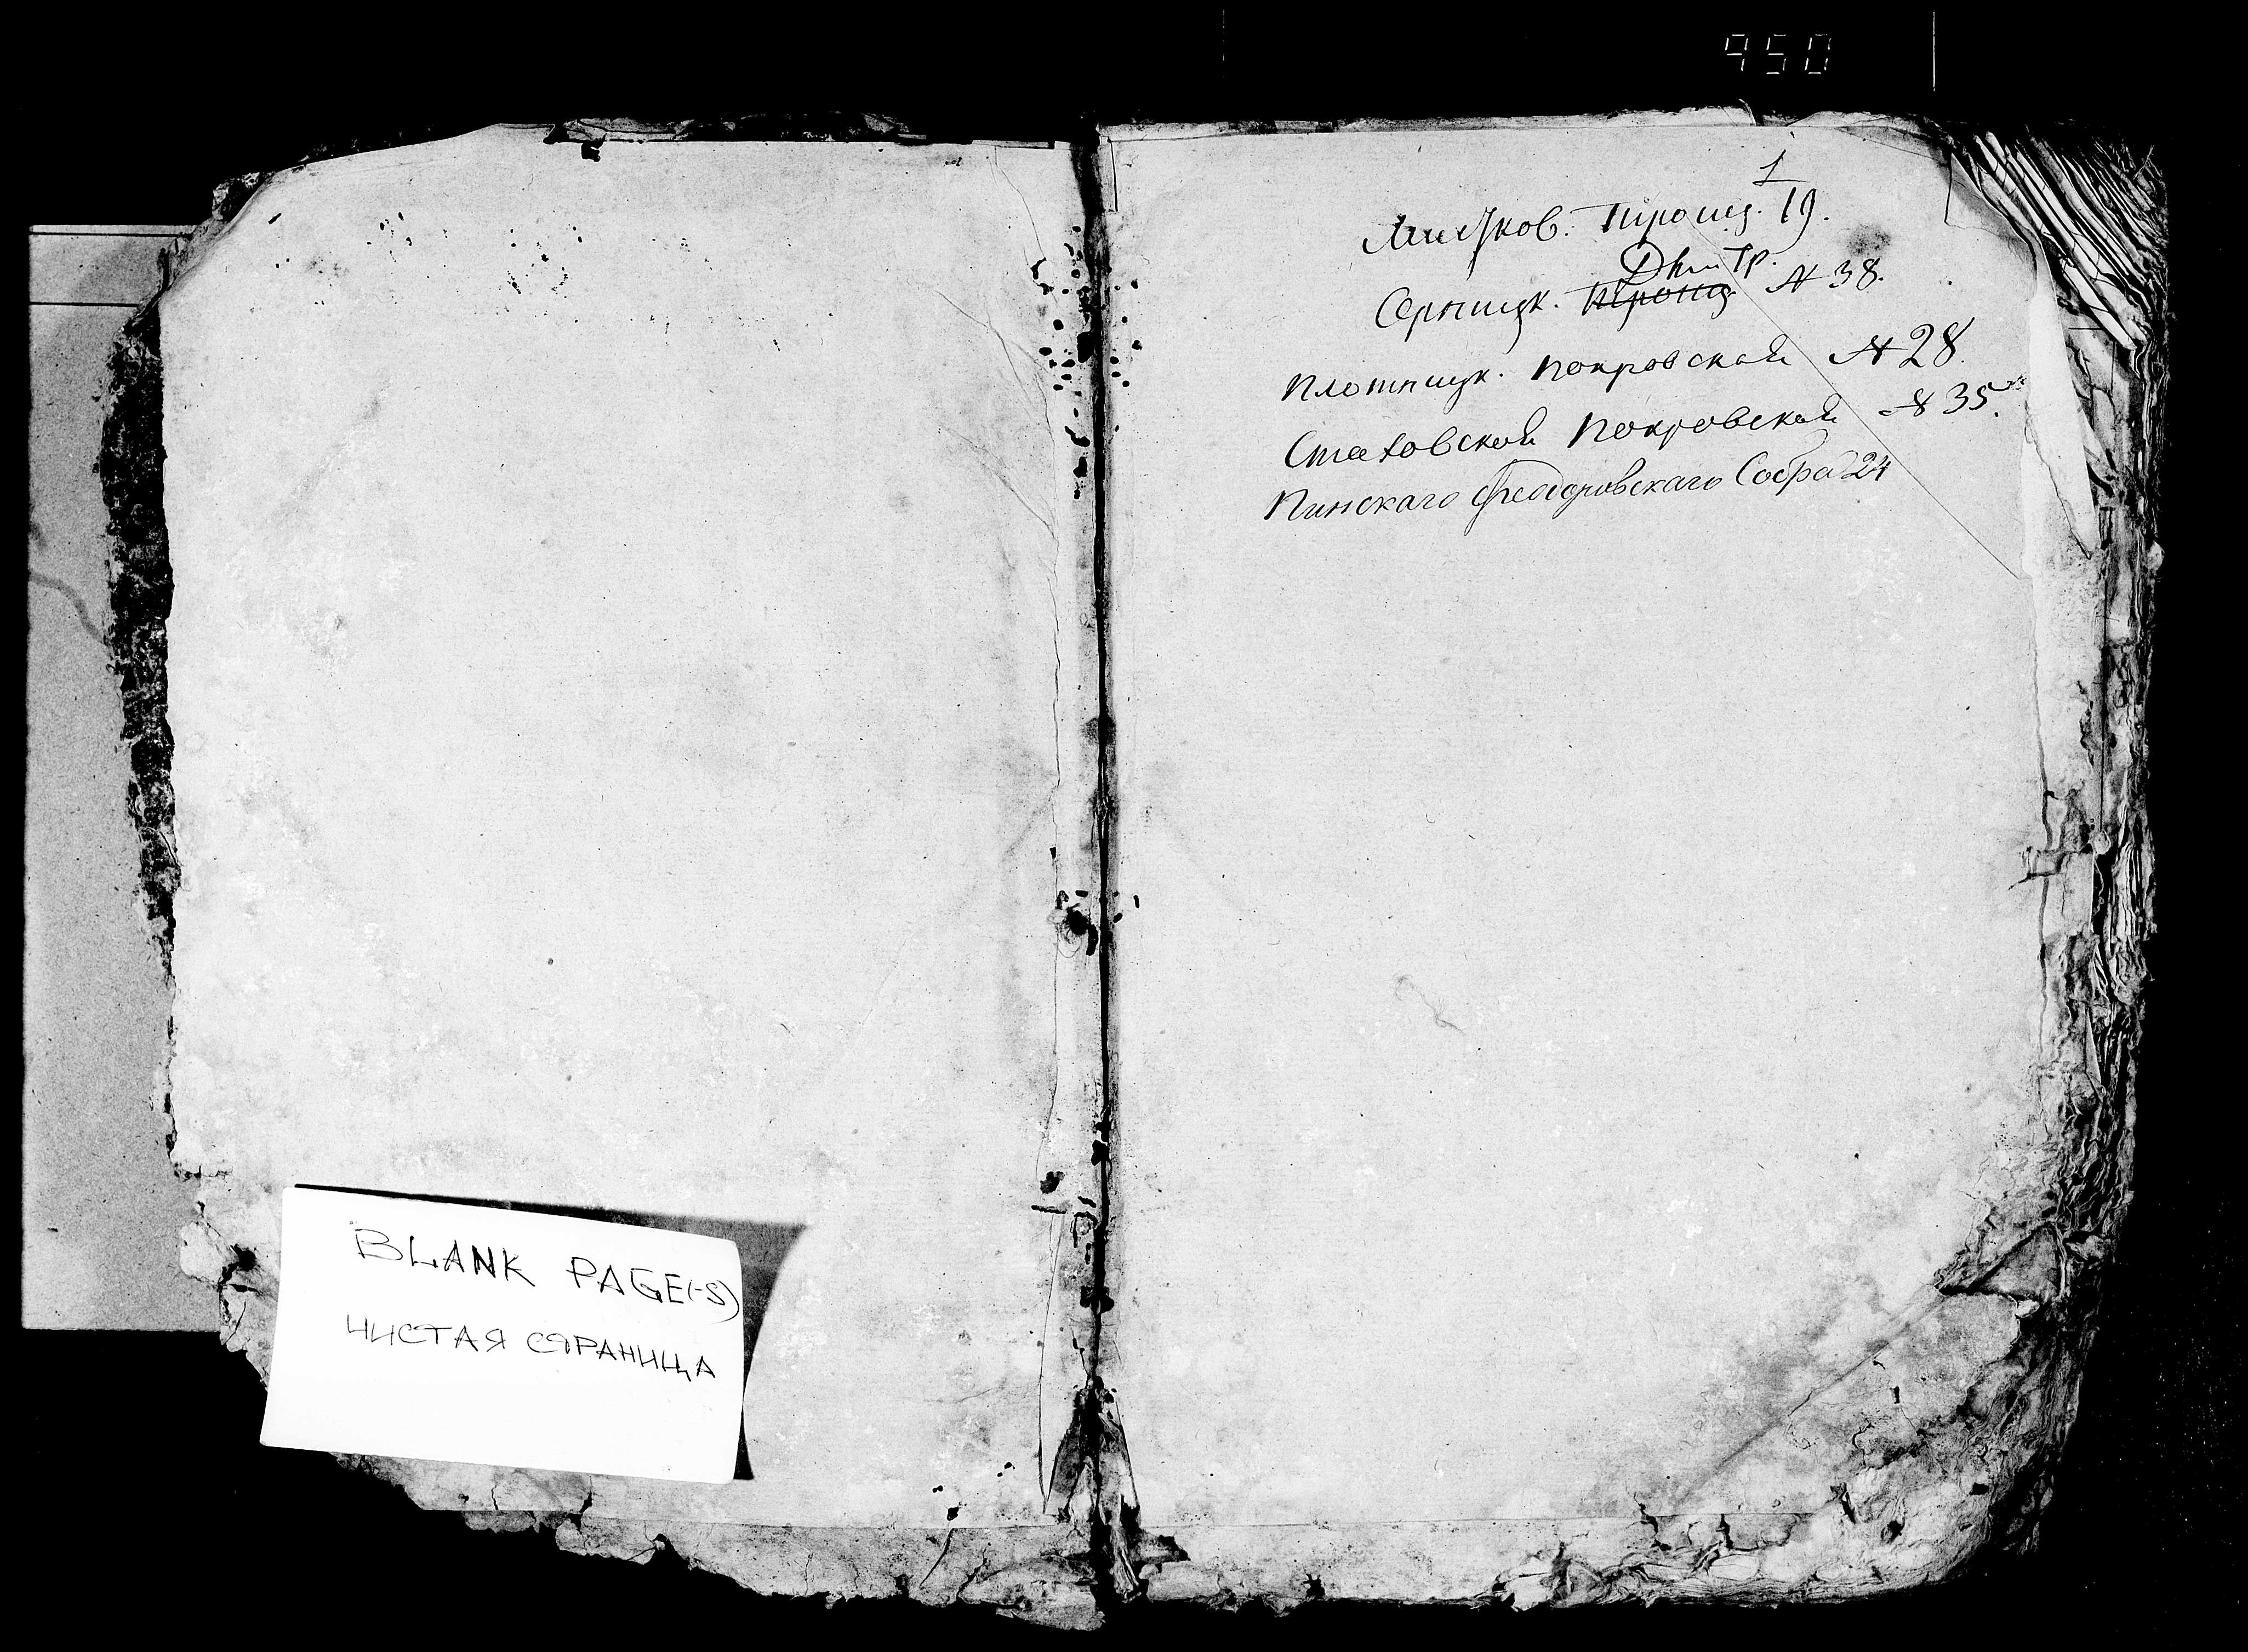 950
1
Троиц. 19.
Дмитр.
Серницк. Троиц. № 38.
Плотницк. Покровской № 28.
Стаховской Покровской № 35.
Пинскаго Феодоровскаго Собра 24
BLANK PAGE(-S)
ЧИСТАЯ СТРАНИЦА